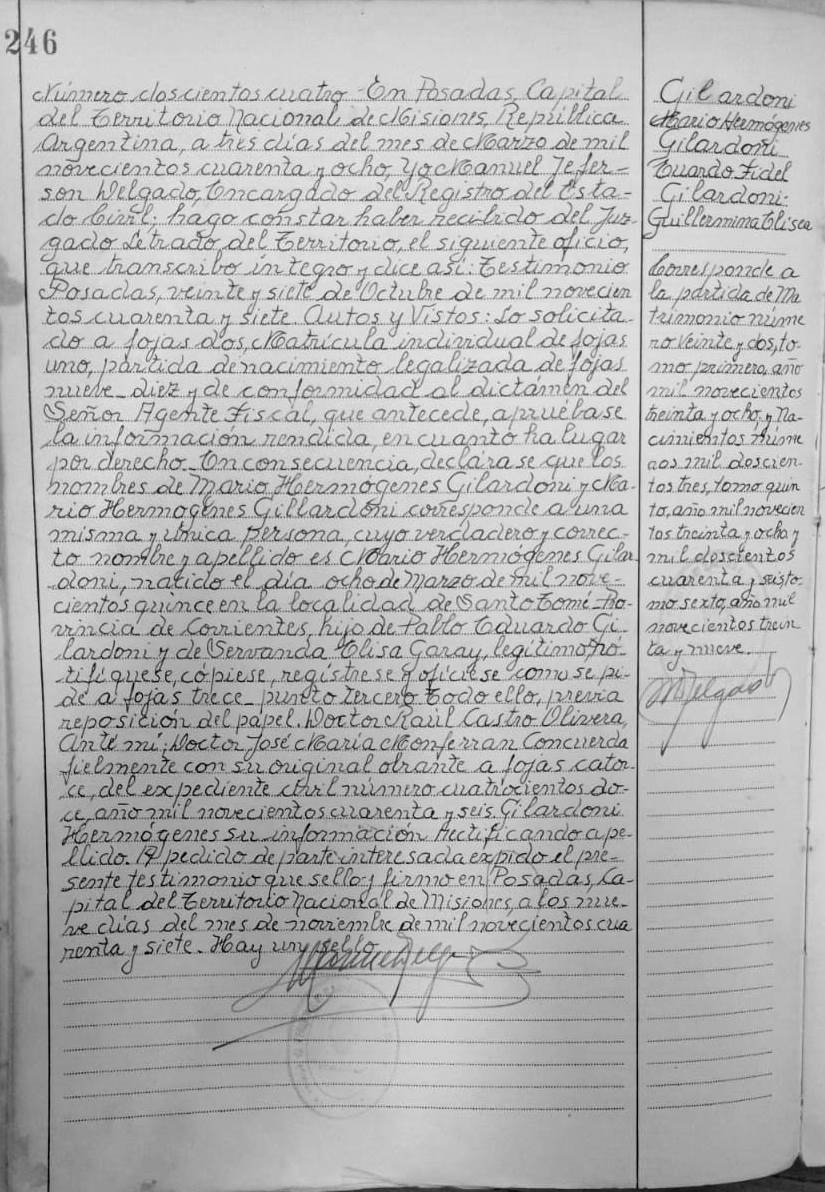 246
Número doscientos cuatro - En Posadas, Capital
del Territorio Nacional de Misiones, República
Argentina, a tres días del mes de Marzo de mil
novecientos cuarenta y ocho, Yo Manuel Jefer-
son Delgado, Encargado del Registro del Esta-
do Civil; hago constar haber recibido del Juz-
gado Letrado, del Territorio, el siguiente oficio,
que transcribo íntegro y dice así: Testimonio
Posadas, veinte y siete de Octubre de mil novecien
tos cuarenta y siete. Autos y Vistos: Lo solicita-
do a fojas dos, Matrícula individual de fojas
uno, partida de nacimiento legalizada de fojas
nueve - diez y de conformidad al dictámen del
Señor Agente Fiscal, que antecede, apruébase
la información rendida, en cuanto ha lugar
por derecho - En consecuencia, declárase que los
nombres de Mario Hermógenes Gilardoni y Ma-
rio Hermógenes Gillardoni corresponde a una
misma y única persona, cuyo verdadero y correc-
to nombre y apellido es Mario Hermógenes Gilar
doni, nacido el día ocho de Marzo de mil nove-
cientos quince en la localidad de Santo Tomé - Pro-
vincia de Corrientes, hijo de Pablo Eduardo Gi-
lardoni y de Servanda Elisa Garay, legítimo, no-
tifíquese, cópiese, regístrese y ofíciese como se pi-
de a fojas trece - punto tercero Todo ello, previa
reposición del papel. Doctor Raúl Castro Olivera,
Ante mí: Doctor José María Monferran Concuerda
fielmente con su original obrante a fojas cator-
ce, del expediente civil número cuatrocientos do-
ce, año mil novecientos cuarenta y seis, Gilardoni
Hermógenes su información Rectificando ape-
llido. A pedido de parte interesada expido el pre-
sente testimonio que sello y firmo en Posadas, Ca-
pital del Territorio Nacional de Misiones, a los nue-
ve días del mes de noviembre de mil novecientos cua
renta y siete. Hay un sello
Gilardoni
Mario Hermógenes
Gilardoni
Eduardo Fidel
Gilardoni:
Guillermina Elisea
Corresponde a
la partida de Ma
trimonio núme
ro veinte y dos, to-
mo primero, año
mil novecientos
treinta y ocho, y Na-
cimientos núme
aos mil doscien-
tos tres, tomo quin
to, año mil novecien
tos treinta y ocho y
mil doscientos
cuarenta y seis to-
mo sexto, año mil
novecientos trein
ta y nueve.
M Delgado